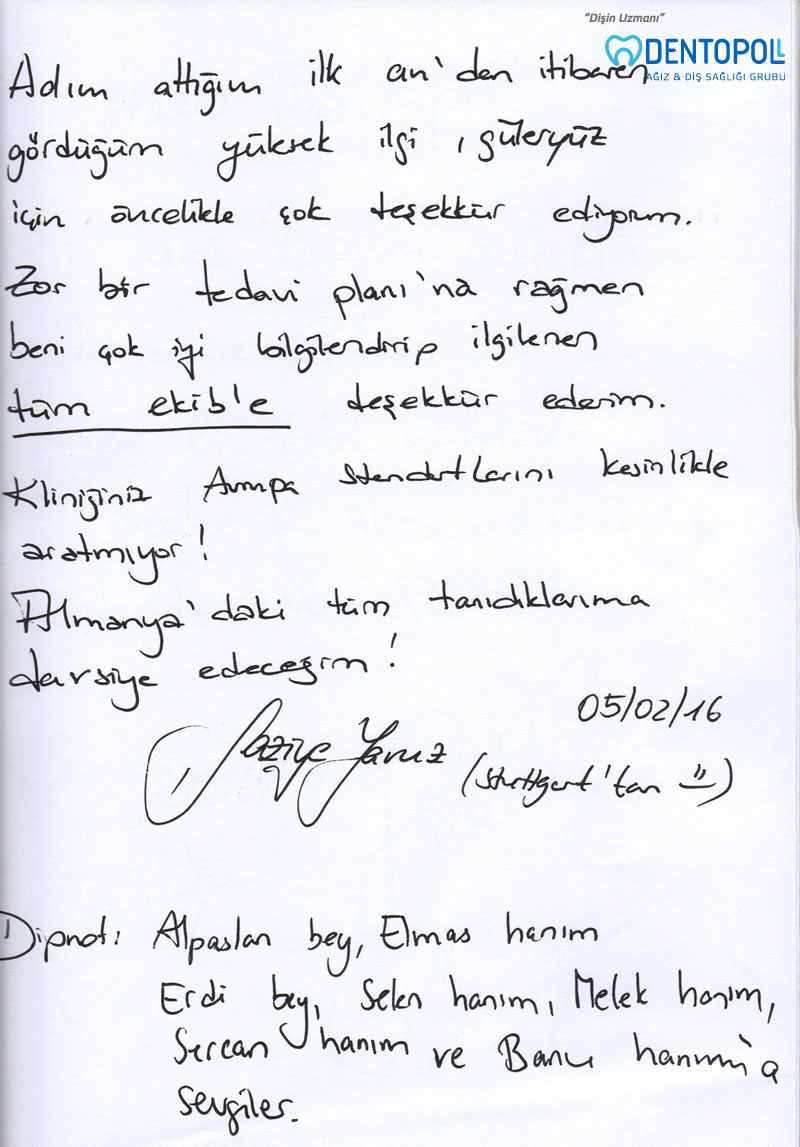 "Dişin Uzmanı"
DENTOPOLL
AĞIZ & DİŞ SAĞLIĞI GRUBU
Adım attığım ilk an'den itibaren
gördüğüm yüksek ilgi, güleryüz
için öncelikle çok teşekkür ediyorum.
Zor bir tedavi planı'na rağmen
beni çok iyi bilgilendirip ilgilenen
tüm ekib'e teşekkür ederim.
Kliniğiniz Avrupa standartlarını kesinlikle
aratmıyor!
Almanya'daki tüm tanıdıklarıma
tavsiye edeceğim!
05/02/16
Yavuz (Stuttgart'tan)
Dipnot: Alpaslan bey, Elmas hanım
Erdi bey, Selen hanım, Melek hanım,
Sercan hanım ve Banu hanım'a
sevgiler.